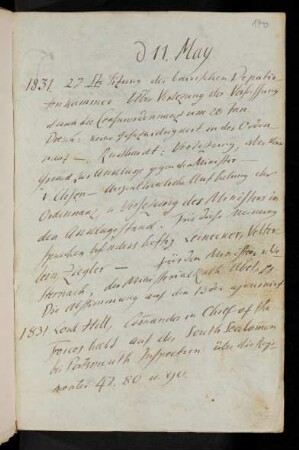 d 11. May
1831 27 Sitzung der bairischen Deputir-
tenkammer. Über Verletzung der Verfassung
durch die Censurordnung vom 28 Jan.
keine Gesetzwidrigkeit in der Ordon-
nanz — Rudhardt: Verletzung, aber kein
Grund zur Anklage gegen den Minister —
v Closen — Augenblickliche Aufhebung der
Ordonnanz, u Versetzung des Ministers in
den Anklagestand. Für diese Meinung
sprachen besonders heftig Seinsheim,
Ziegler — für den Minister
der Ministerialrath Abel.
Die Abstimmung auf den 13ten
1831 Lord Hill, Comander in Chief of the
Forces hält auf der South Sea Common
bei Portsmouth Inspection über die Regi-
menter 47. 80 u. 90.